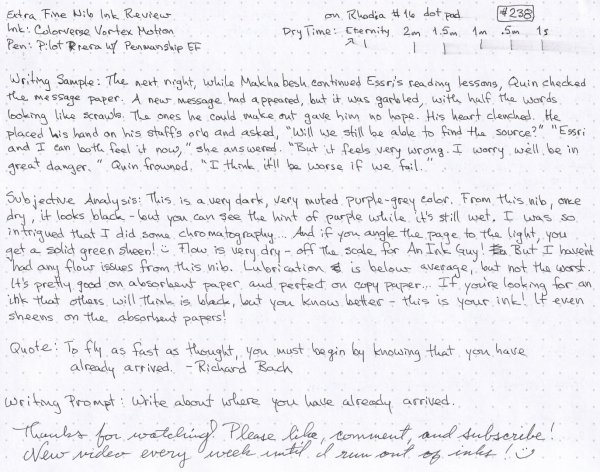 Extra Fine Nib Ink Review on Rhodia #16 dot pad #238
Ink: Colorverse Vortex Motion Dry Time: Eternity 2m 1.5m 1m .5m 1s
Pen: Pilot Prera w/ Penmanship EF
Writing Sample: The next night, while Makhabesh continued Essri's reading lessons, Quin checked
the message paper. A new message had appeared, but it was garbled, with half the words
looking like scrawls. The ones he could make out gave him no hope. His heart clenched. He
placed his hand on his staff's orb and asked, "Will we still be able to find the source?" "Essri
and I can both feel it now," she answered. "But it feels very wrong. I worry we'll be in
great danger." Quin frowned. "I think it'll be worse if we fail."
Subjective Analysis: This is a very dark, very muted purple-grey color. From this nib, once
dry, it looks black - but you can see the hint of purple while it's still wet. I was so
intrigued that I did some chromatography... And if you angle the page to the light, you
get a solid green sheen! Flow is very dry - off the scale for An Ink Guy! But I haven't
had any flow issues from this nib. Lubrication is below average, but not the worst.
It's pretty good on absorbent paper and perfect on copy paper... If you're looking for an
ink that others will think is black, but you know better - this is your ink! It even
sheens on the absorbent papers!
Quote: To fly as fast as thought, you must begin by knowing that you have
already arrived. - Richard Bach
Writing Prompt: Write about where you have already arrived.
Thanks for watching! Please like, comment, and subscribe!
New video every week until I run out of inks! :)